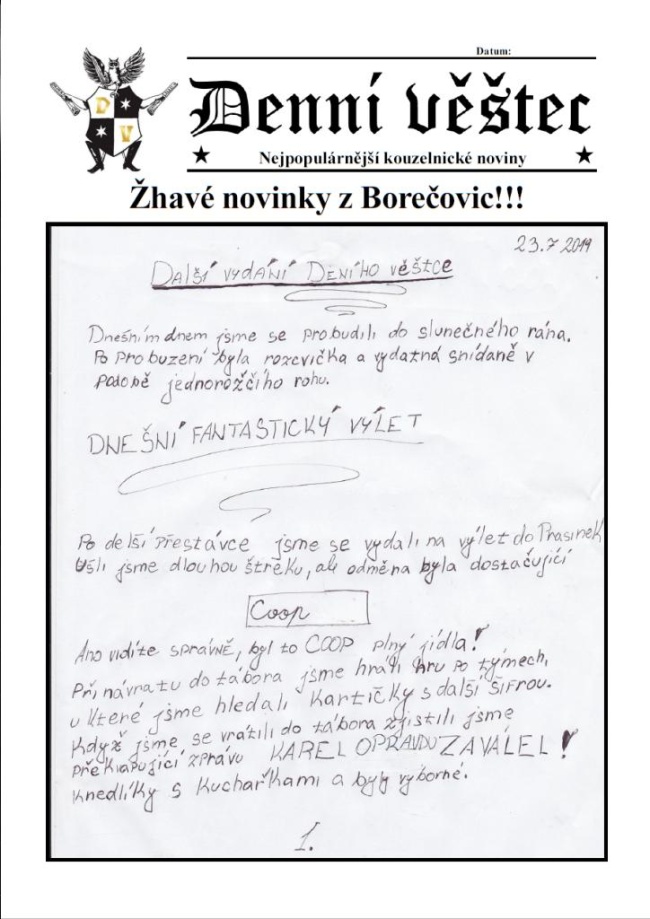 Datum:
D V
Denní věštec
Nejpopulárnější kouzelnické noviny
Žhavé novinky z Borečovic!!!
23.7 2019
DALŠÍ VYDÁNÍ DENÍHO VěŠTCE
Dnešním dnem jsme se probudili do slunečného rána.
Po probuzení byla rozcvička a vydatná snídaně v
podobě jednorožčího rohu.
DNEŠNÍ FANTASTICKÝ VÝLET
Po delší přestávce jsme se vydali na výlet do Prasinek
Ušli jsme dlouhou štreku, ale odměna byla dostačující
Coop
Ano vidíte správně, byl to COOP plný jídla!
Při návratu do tábora jsme hráli hru po týmech,
u které jsme hledali kartičky s další šifrou.
Když jsme se vrátili do tábora zjistili jsme
překvapující zprávu KAREL OPRAVDU ZAVÁLEL!
Knedlíky s Kuchařkami a byly výborné.
1.